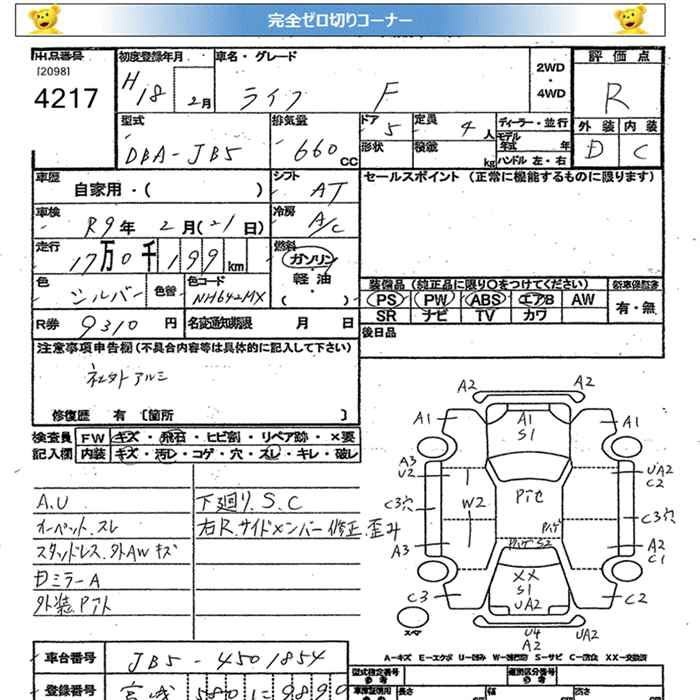 完全ゼロ切りコーナー
出品番号 初度登録年月 車名・グレード 2WD・4WD 評価点
[2098]
4217
H18 2月 ライフ F R
型式 排気量 ドア 定員 ディーラー・並行 外装 内装
DBA-JB5 660CC 5 4人 モデル年式 年 D C
形状 積載 kg ハンドル 左・右
車歴 自家用・( ) シフト AT セールスポイント (正常に機能するものに限ります)
車検 R9年 2月(21日) 冷房 A/C
走行 17万0千199km 燃料 ガソリン・軽油・( )
色 シルバー 色替 色コード NH642MX
装備品 (純正品に限り○をつけてください) 新車保証書
PS PW ABS エアB AW 有・無
SR ナビ TV カワ
R券 9310円 名変通知期限 月 日 後日品
注意事項申告欄 (不具合内容等は具体的に記入して下さい)
社外アルミ
修復歴 有 [箇所 ]
検査員 FW キズ・飛石・ヒビ割・リペア跡・×要
記入欄 内装 キズ・汚レ・コゲ・穴・スレ・キレ・破レ
A.U 下廻り.S.C
右R.サイドメンバー修正.歪み
スタッドレス.外AWキズ
ミラーA
外装.Pアト
A2 A2
A1 A1 A1
S1
A3 UA2
U2 C2
W2
C3穴 C3穴
A3 A2
C1
XX
S1
UA2
C3 C2
スペア U4 UA2
A2
A-キズ E-エクボ U-凹み W-補修跡 S-サビ C-腐食 XX-交換済
車台番号 JB5-4501854
型式指定番号 類別区分番号
登録番号 宮城 580
長さ 幅 高さ